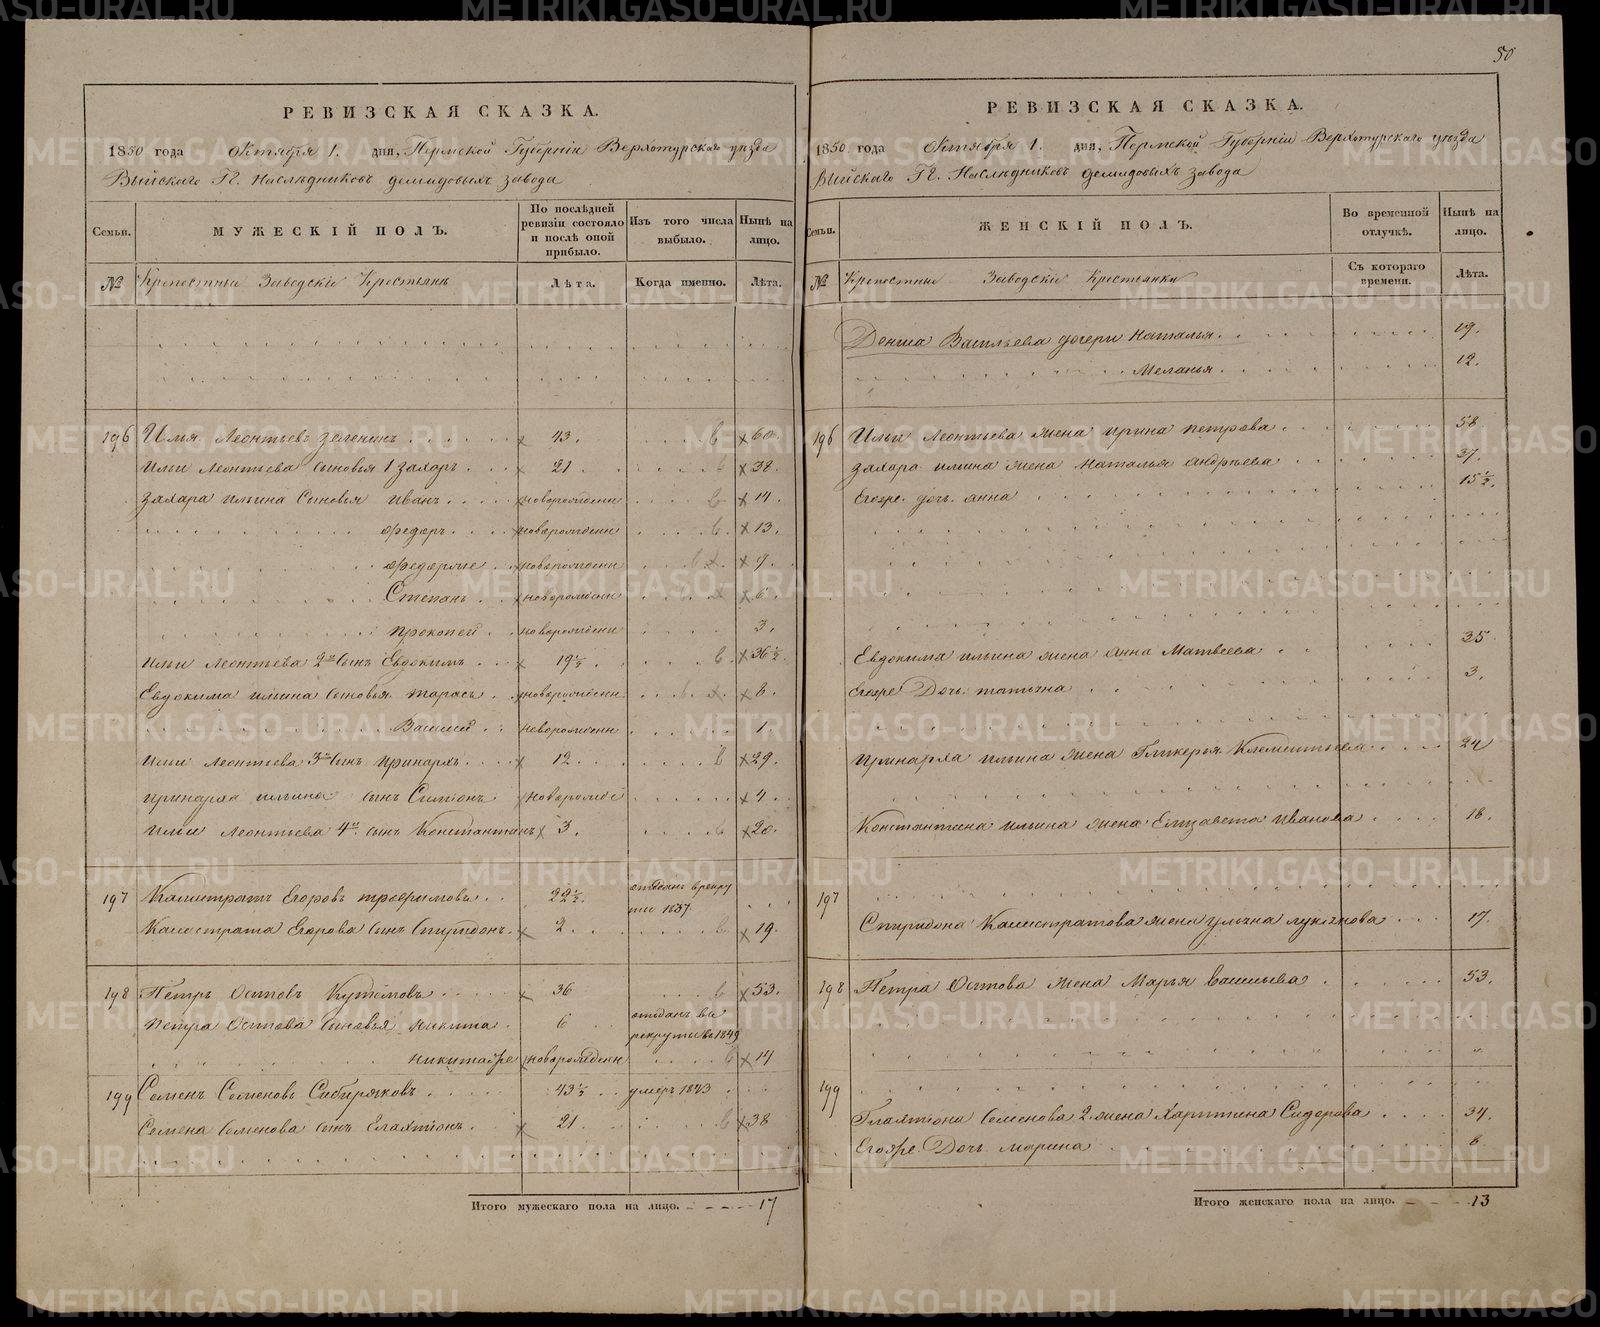 50
РЕВИЗСКАЯ СКАЗКА.
1850 года Октября 1. дня, Пермской Губерніи Верхотурскаго уезда
Выйскаго ГГ. Наследниковъ Демидовыхъ завода
Семьи.
МУЖЕСКІЙ ПОЛЪ.
По послѣдней ревизіи состояло и послѣ оной прибыло.
Изъ того числа выбыло.
Нынѣ на лицо.
№
Крепостныи Заводскіи Крестьянъ
Лѣта.
Когда именно.
Лѣта.
196 Илья Леонтьевъ Зеленинъ 43. 60.
Ильи Леонтьева сыновья 1 Захаръ 21. 38.
Захара Ильина Сыновья Иванъ новорожденн 14.
Федоръ новорожденн 13.
Федорже новорожденн 9.
Степанъ новорожденн 6.
Прокопей новорожденн 3.
Ильи Леонтьева 2й сынъ Евдокимъ 19½ 36½.
Евдокима Ильина сыновья Тарасъ новорожденн 8.
Василей новорожденн 1.
Ильи Леонтьева 3й сынъ Иринархъ 12. 29.
Иринарха Ильина сынъ Симионъ новорожде 4.
Ильи Леонтьева 4й сынъ Константинъ 3. 20.
197 Калистратъ Егоровъ Трефимовъ 22½. отданъ в рекруты 1837.
Калистрата Егорова сынъ Спиридонъ 2. 19.
198 Петръ Осиповъ Кутемовъ 36 53.
Петра Осипова сыновья Никита 6 отданъ въ рекруты въ 1849
Никита же новорожденн 14
199 Семенъ Семеновъ Сибиряковъ 43½ умеръ 1843
Семена Семенова сынъ Галахтионъ 21. 38
Итого мужескаго пола на лицо. 17
РЕВИЗСКАЯ СКАЗКА.
1850 года Октября 1. дня, Пермской Губерніи Верхотурскаго уезда
Выйскаго ГГ. Наследниковъ Демидовыхъ завода
Семьи.
ЖЕНСКІЙ ПОЛЪ.
Во временной отлучкѣ.
Нынѣ на лицо.
№
Крепостныи Заводскіи Крестьянки
Съ котораго времени.
Лѣта.
Васильева дочери Наталья 19.
Меланья 12.
196 Ильи Леонтьева жена Ирина Петрова 58.
Захара Ильина жена Наталья Андреева 37.
Егоже дочь Анна 15½.
Евдокима Ильина жена Анна Матвеева 35
Егоже Дочь Татьяна 3.
Иринарха Ильина жена Гликерья Клементьева 24
Константина Ильина жена Елизавета Иванова 18.
197
Спиридона Калистратова жена Ульяна Лукоянова 17.
198 Петра Осипова жена Марья Васильева 53.
199
Галахтиона Семенова 2 жена Харитина Сидорова 34.
Егоже Дочь Марина 6
Итого женскаго пола на лицо. 13
METRIKI.GASO-URAL.RU